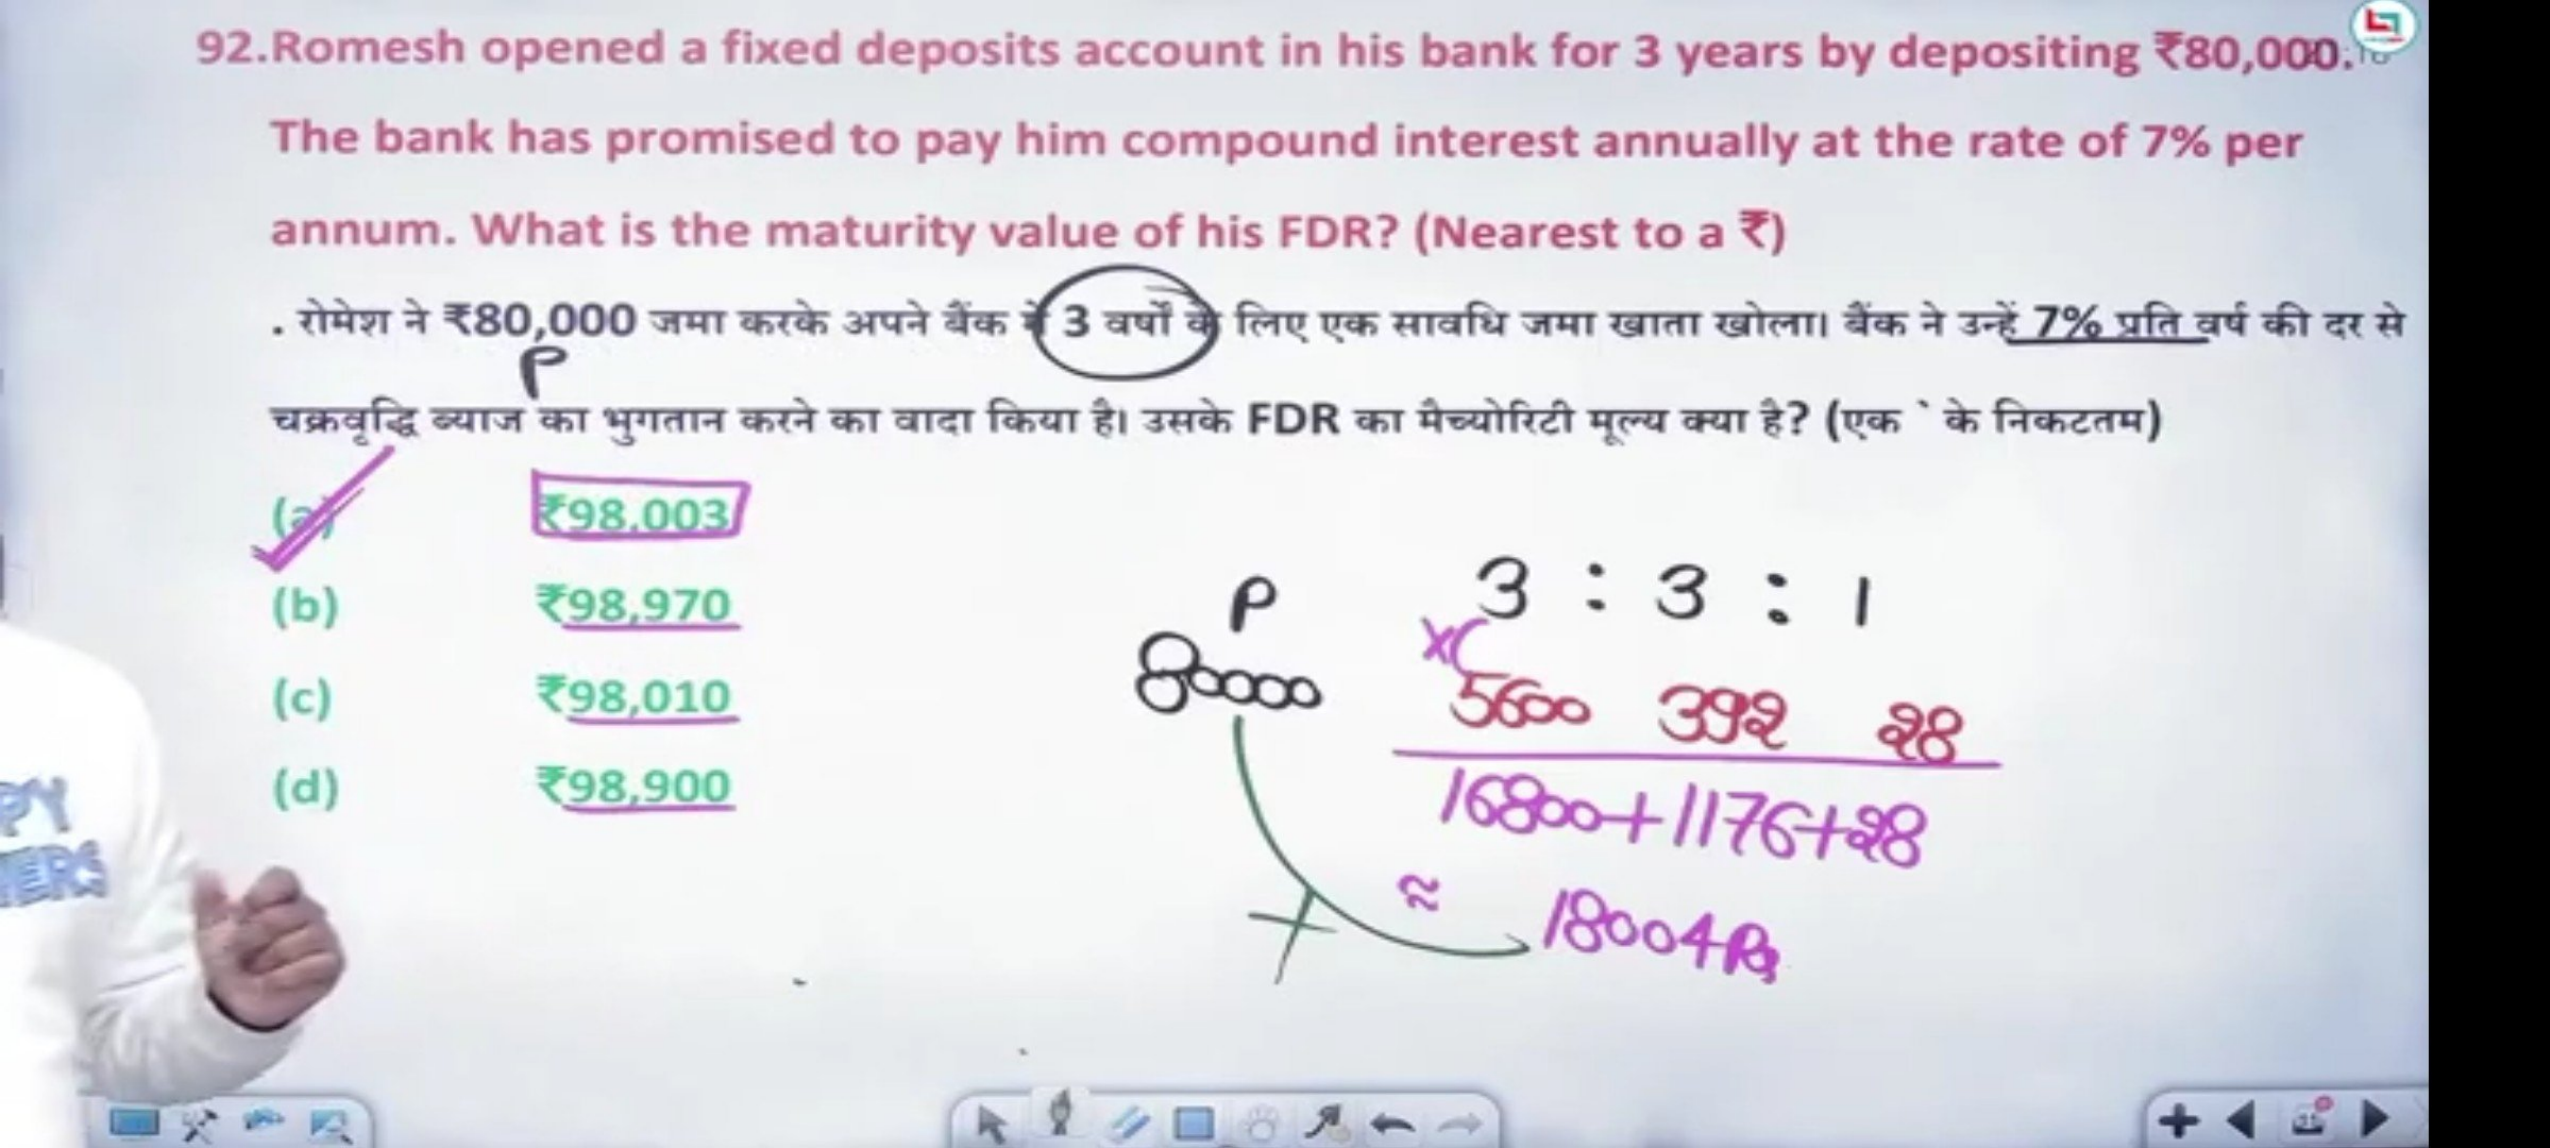 92.Romesh opened a fixed deposits account in his bank for 3 years by depositing ₹80,000.
The bank has promised to pay him compound interest annually at the rate of 7% per
annum. What is the maturity value of his FDR? (Nearest to a ₹)
. रोमेश ने ₹80,000 जमा करके अपने बैंक में 3 वर्षों के लिए एक सावधि जमा खाता खोला। बैंक ने उन्हें 7% प्रति वर्ष की दर से
P
चक्रवृद्धि ब्याज का भुगतान करने का वादा किया है। उसके FDR का मैच्योरिटी मूल्य क्या है? (एक ` के निकटतम)
(a) ₹98,003
(b) ₹98,970
(c) ₹98,010
(d) ₹98,900
P 3 : 3 : 1
80000 5600 392 28
16800+1176+28
≈ 18004 Rs
PY